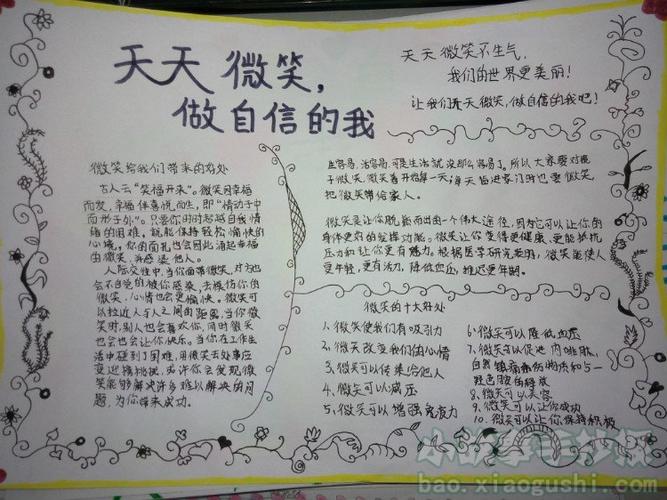 天天微笑，
做自信的我
天天微笑不生气，
我们的世界更美丽！
让我们天天微笑，做自信的我吧！
微笑给我们带来的好处
古人云"笑福开来"。微笑因幸福
而发，幸福伴喜悦而生，即"情动于中
而形于外"。只要你时时超越自我情
绪的困难，就能保持轻松愉快的
心境，你的面孔也会因此涌起幸福
的微笑，并感染他人。
人际交往中，当你面带微笑，对方也
会不自觉的被你感染，去模仿你的
微笑，心情也会更愉快。微笑可
以拉近人与人之间的距离，当你微
笑时，别人也会喜欢你，同时微笑
也会也会让你快乐。当你在工作生
活中碰到了困难，用微笑去处事应
变迎接挑战，或许你会发现微
笑能够解决许多难以解决的问
题，为你带来成功。
生容易，活容易，可是生活就没那么容易了。所以大家要对镜
子微笑，微笑着开始每一天，每天当进家门时也要微笑，
把微笑带给家人。
微笑是让你脱颖而出的一个伟大途径，因为它可以让你的
身体更好的发挥功能。微笑让你变得更健康、更能抵抗
压力和让你更有魅力。根据医学研究表明，微笑能使人
更年轻，更有活力，降低血压，推迟更年期。
微笑的十大好处
1、微笑使我们有吸引力
2、微笑改变我们的心情
3、微笑可以传来给他人
4、微笑可以减压
5、微笑可以增强免疫力
6、微笑可以降低血压
7、微笑可以促进内啡肽，
自然镇痛的物质和5-
羟色胺的释放
8、微笑可以美容
9、微笑可以让你成功
10、微笑可以让你保持积极
小故事手抄报
bao.xiaogushi.com